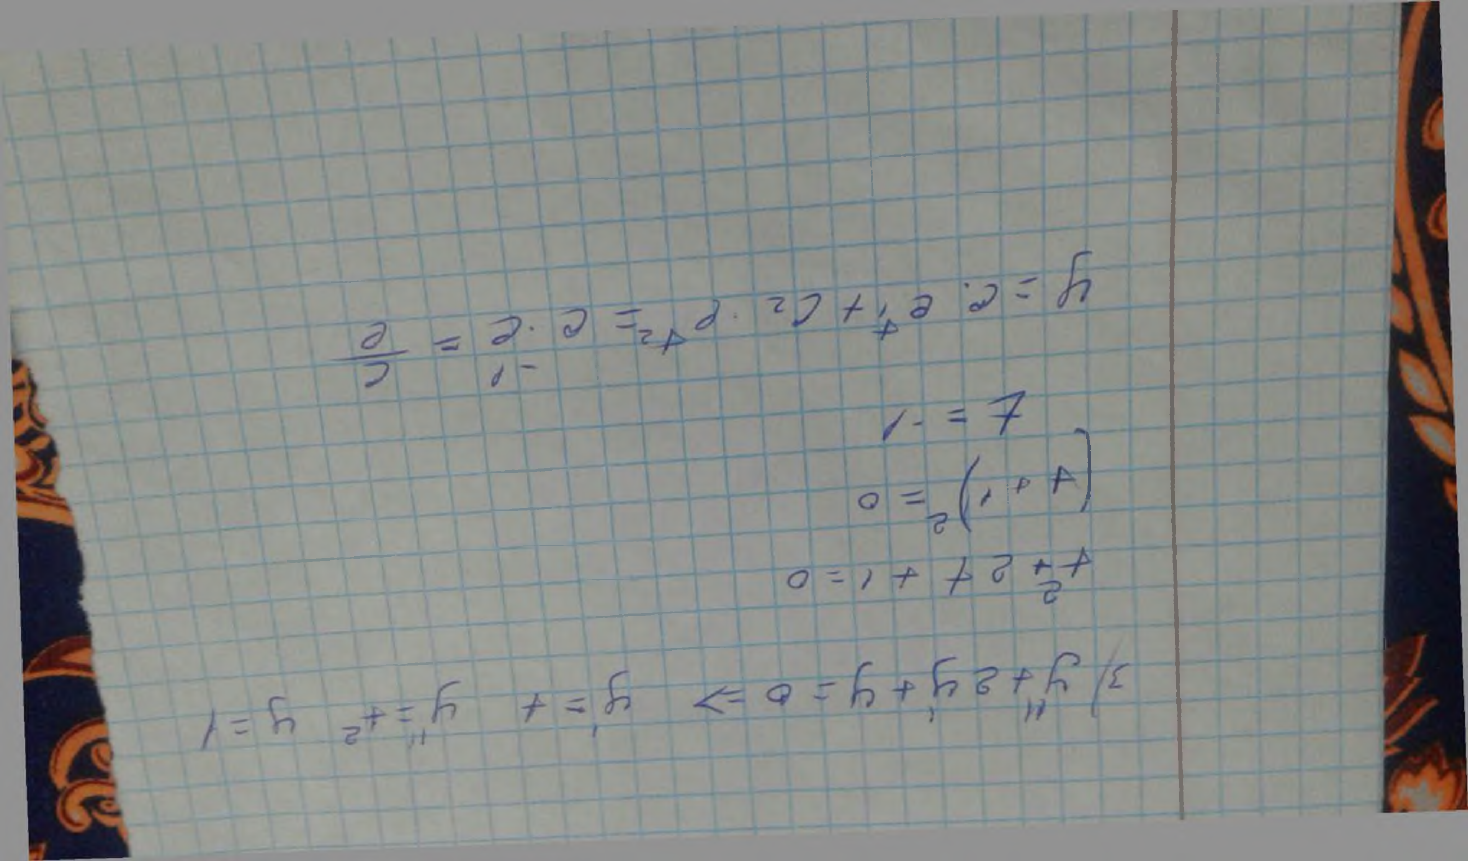 3) y''+2y'+y=0 => y'=t y''=t² y=1
t²+2t+1=0
(t+1)²=0
t=-1
y=c·e^t₁+C₂·e^t₂=c·e^-1=c/e